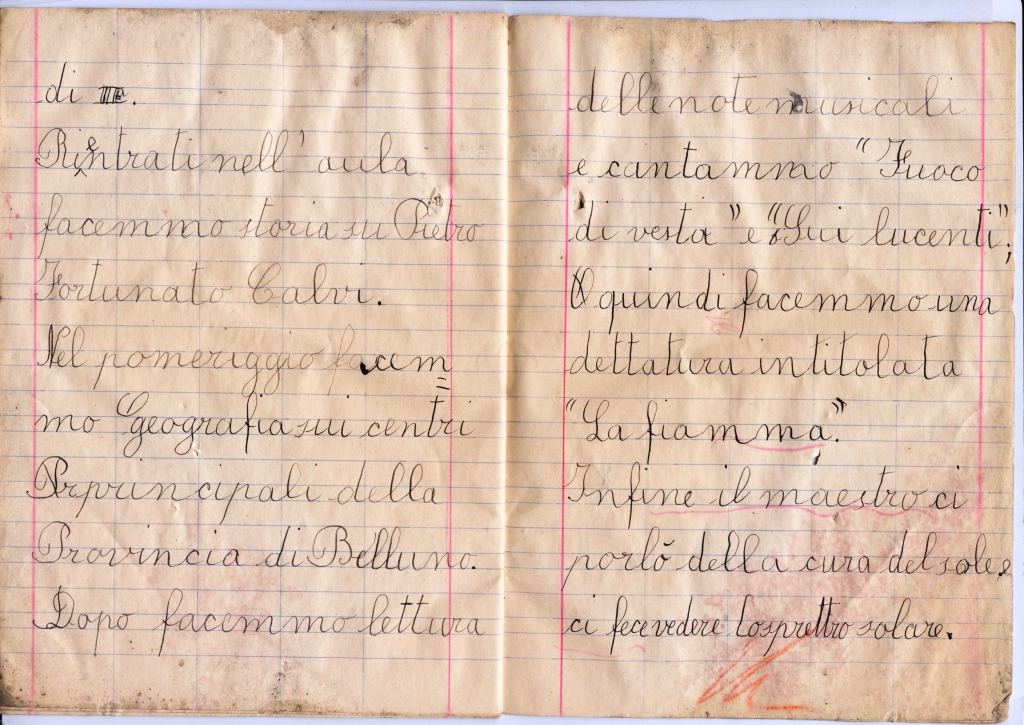 di III.
Rientrati nell' aula
facemmo storia su Pietro
Fortunato Calvi.
Nel pomeriggio facem
mo Geografia sui centri
Prprincipali della
Provincia di Belluno.
Dopo facemmo lettura
delle note musicali
e cantammo "Fuoco
di vesta" e "Sui lucenti";
quindi facemmo una
dettatura intitolata
"La fiamma".
Infine il maestro ci
porlò della cura del sole e
ci fece vedere lo sprettro solare.